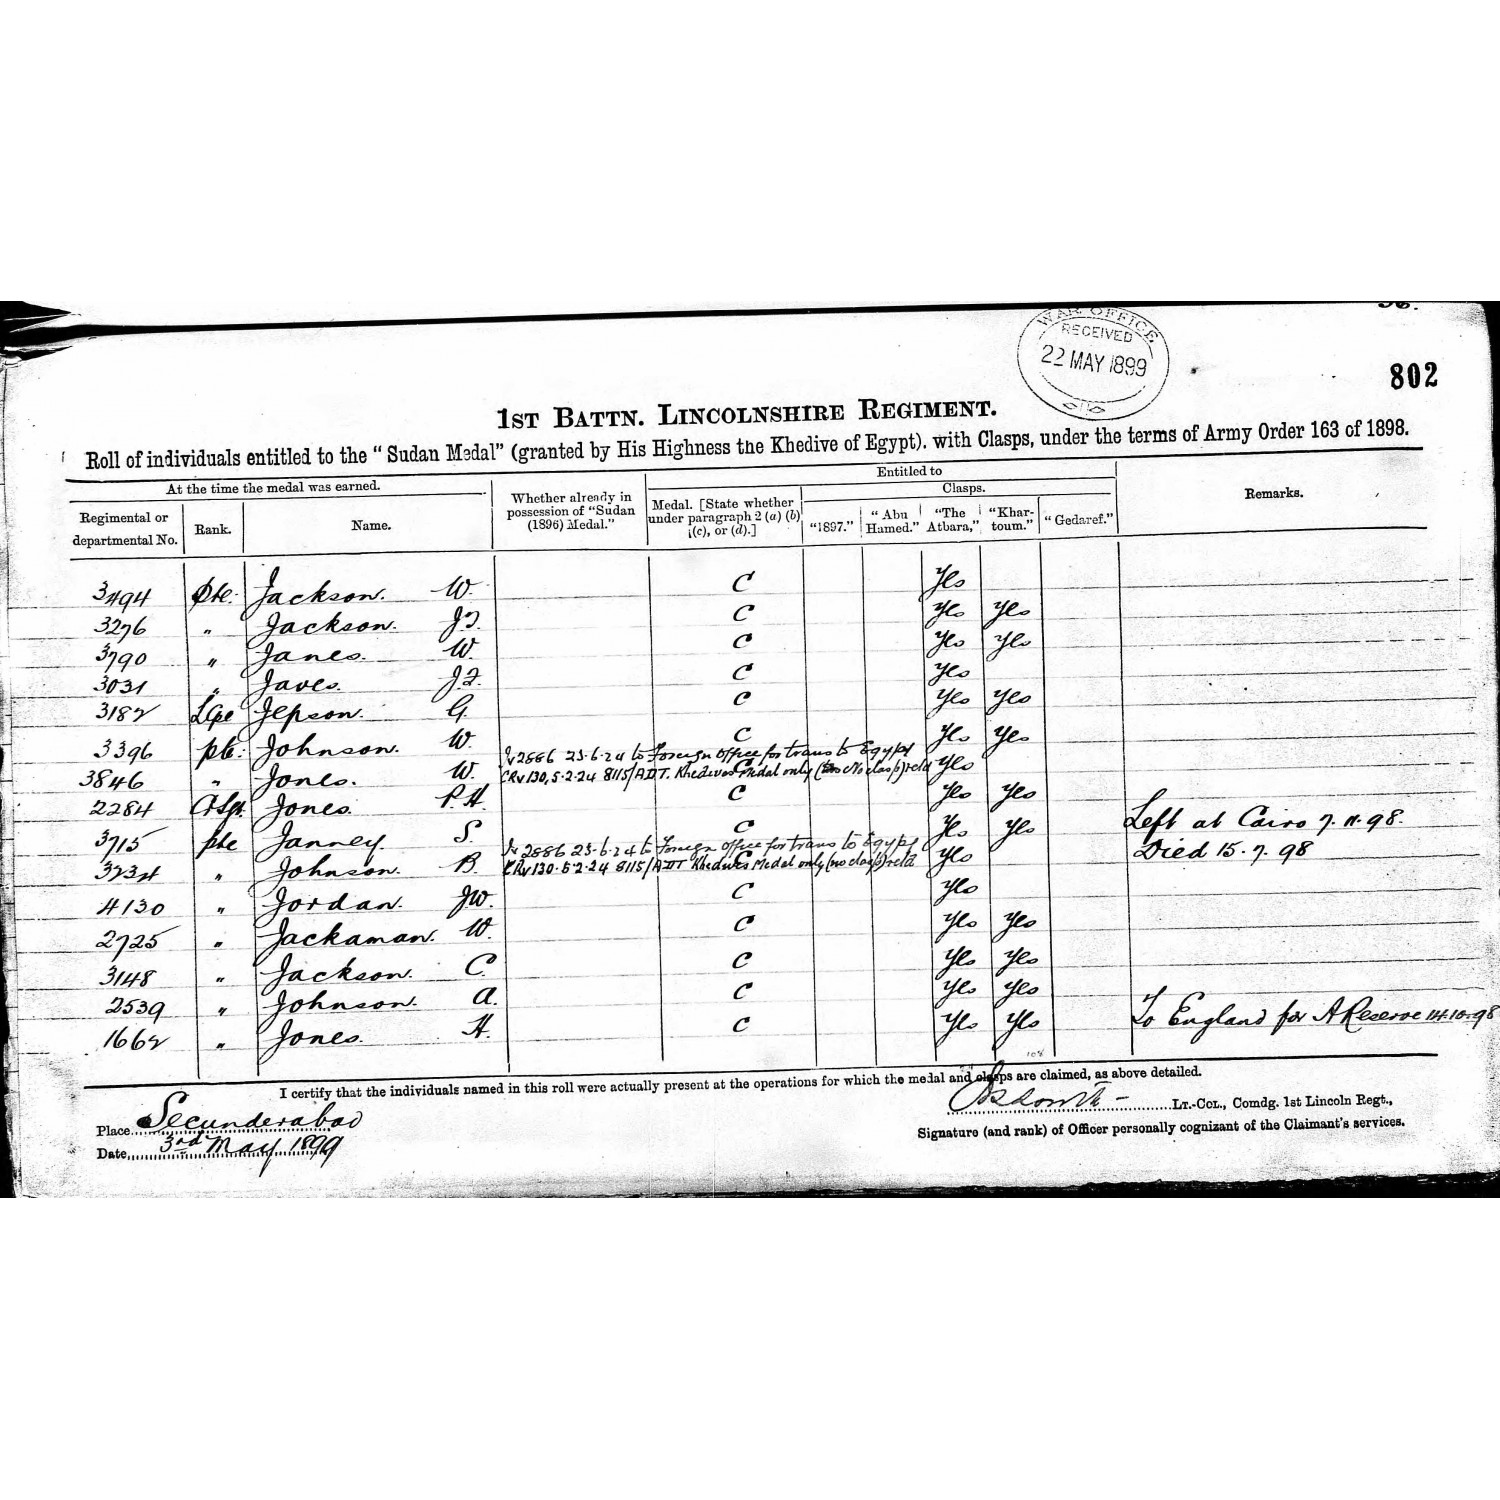 WAR OFFICE
RECEIVED
22 MAY 1899
802
1ST BATTN. LINCOLNSHIRE REGIMENT.
Roll of individuals entitled to the "Sudan Medal" (granted by His Highness the Khedive of Egypt). with Clasps, under the terms of Army Order 163 of 1898.
At the time the medal was earned.
Entitled to
Regimental or departmental No.
Rank.
Name.
Whether already in possession of "Sudan (1896) Medal."
Medal. [State whether under paragraph 2 (a) (b) (c), or (d).]
Clasps.
"1897."
"Abu Hamed."
"The Atbara,"
"Khartoum."
"Gedaref."
Remarks.
3494 Pte. Jackson. W. C Yes
3276 " Jackson. J.F. C Yes Yes
3790 " Janes. W. C Yes Yes
3031 " Javes. J.F. C Yes
3182 LCpe Jepson. G. C Yes Yes
3396 pte. Johnson. W. C Yes Yes
Iv 2886 23-6-24 to Foreign office for trans to Egypt
3846 " Jones. W. CRv130, 5-2-24 8115/ADT. Khedives Medal only (No clasp) retd C Yes
2284 Jones. P.H. C Yes Yes
3715 pte Janney. S. C Yes Yes Left at Cairo 7.11.98.
Iv 2886 23-6-24 to Foreign office for trans to Egypt
3234 " Johnson. B. CRv130. 5-2-24 8115/ADT Khedives Medal only (no clasp) retd C Yes Died 15.7.98
4130 " Jordan. JW. C Yes
2725 " Jackaman. W. C Yes Yes
3148 " Jackson. C. C Yes Yes
2539 " Johnson. A. C Yes Yes
1662 " Jones. H. C Yes Yes To England for A Reserve 14.10.98
108
I certify that the individuals named in this roll were actually present at the operations for which the medal and clasps are claimed, as above detailed.
Place Secunderabad
LT.-COL., Comdg. 1st Lincoln Regt.,
Date 3rd May 1899
Signature (and rank) of Officer personally cognizant of the Claimant's services.